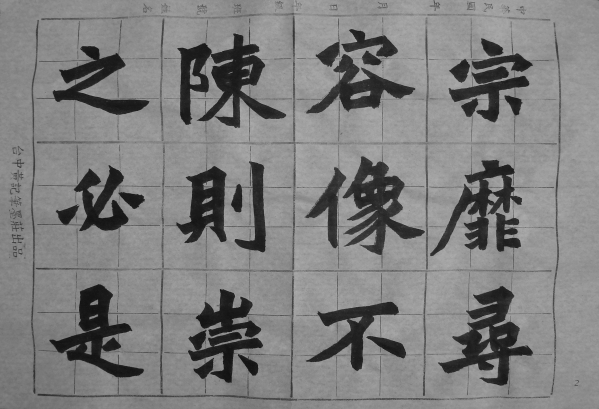 宗靡尋
容像不
陳則崇
之必是
台中蕭記筆墨莊出品
2